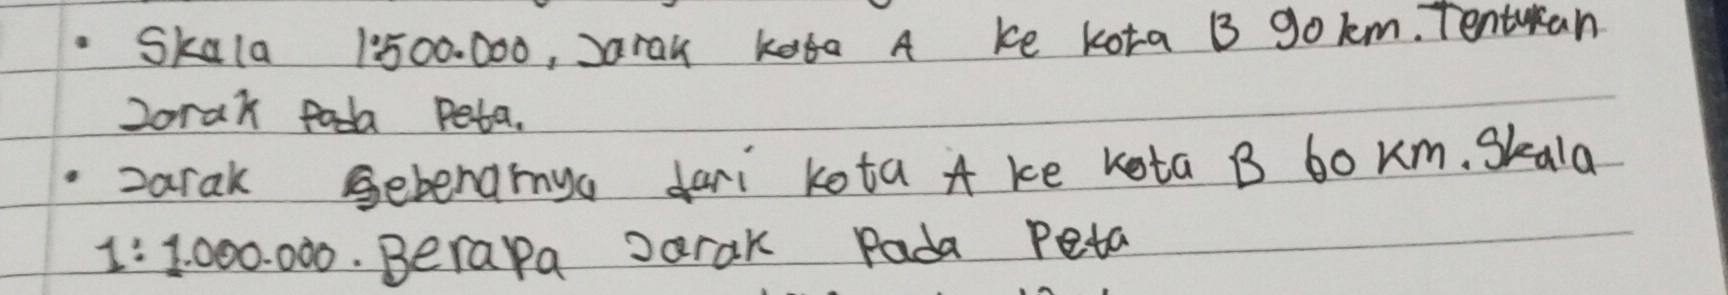 • Skala 1:500.000, Jarak kota A ke kota B 90 km. Tentukan
Jarak Pada Peta.
• Jarak Sebenarnya dari kota A ke kota B 60 KM. Skala
1:1.000.000. Berapa Jarak Pada Peta